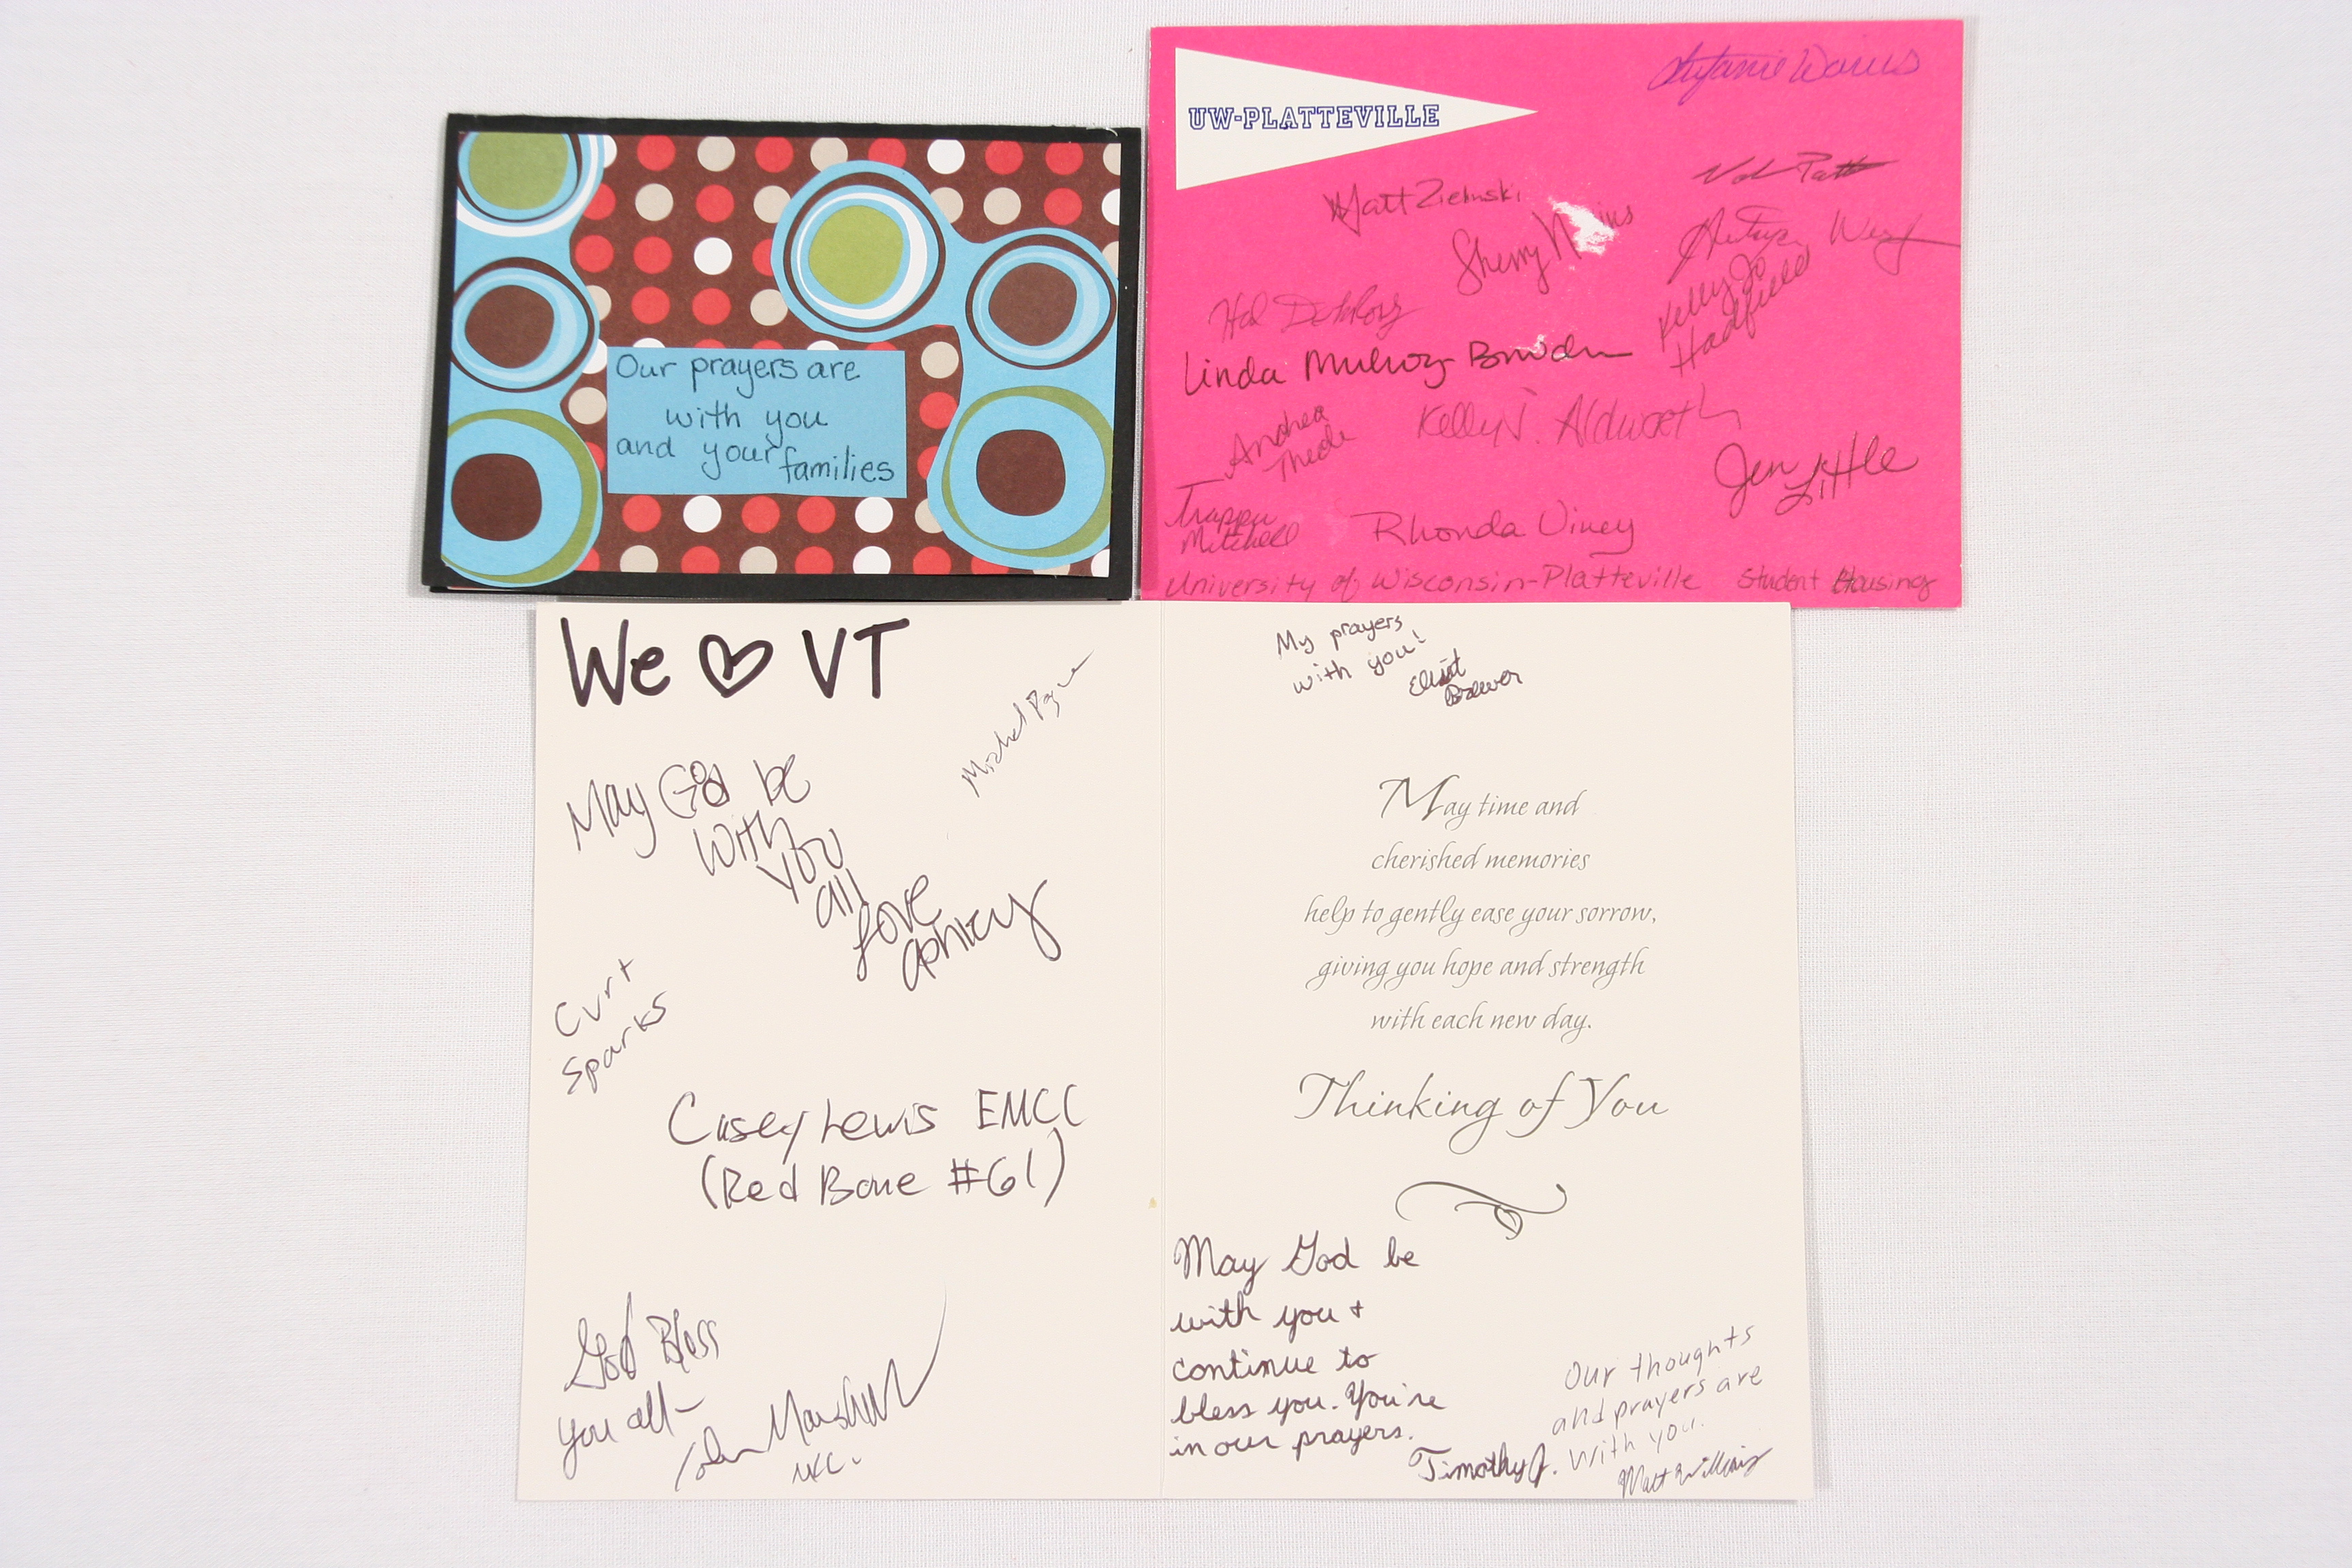 Our prayers are
with you
and your families
UW-PLATTEVILLE
Matt Zielinski
Sherry
Kelly Jo
Hadfield
Linda Mulroy-Bowden
Andrea
Thede
Kelly J. Aldworth
Jen Little
Mitchell
Rhonda Viney
University of Wisconsin-Platteville Student Housing
We ♡ VT
May God be
with
you
all
Love
Ashley
Michel Payne
Curt
Sparks
Casey Lewis EMCC
(Red Bone #61)
God Bless
you all-
My prayers
with you!
Brewer
May time and
cherished memories
help to gently ease your sorrow,
giving you hope and strength
with each new day.
Thinking of You
May God be
with you +
continue to
bless you. You're
in our prayers.
Timothy J.
Our thoughts
and prayers are
with you.
Matt Williams